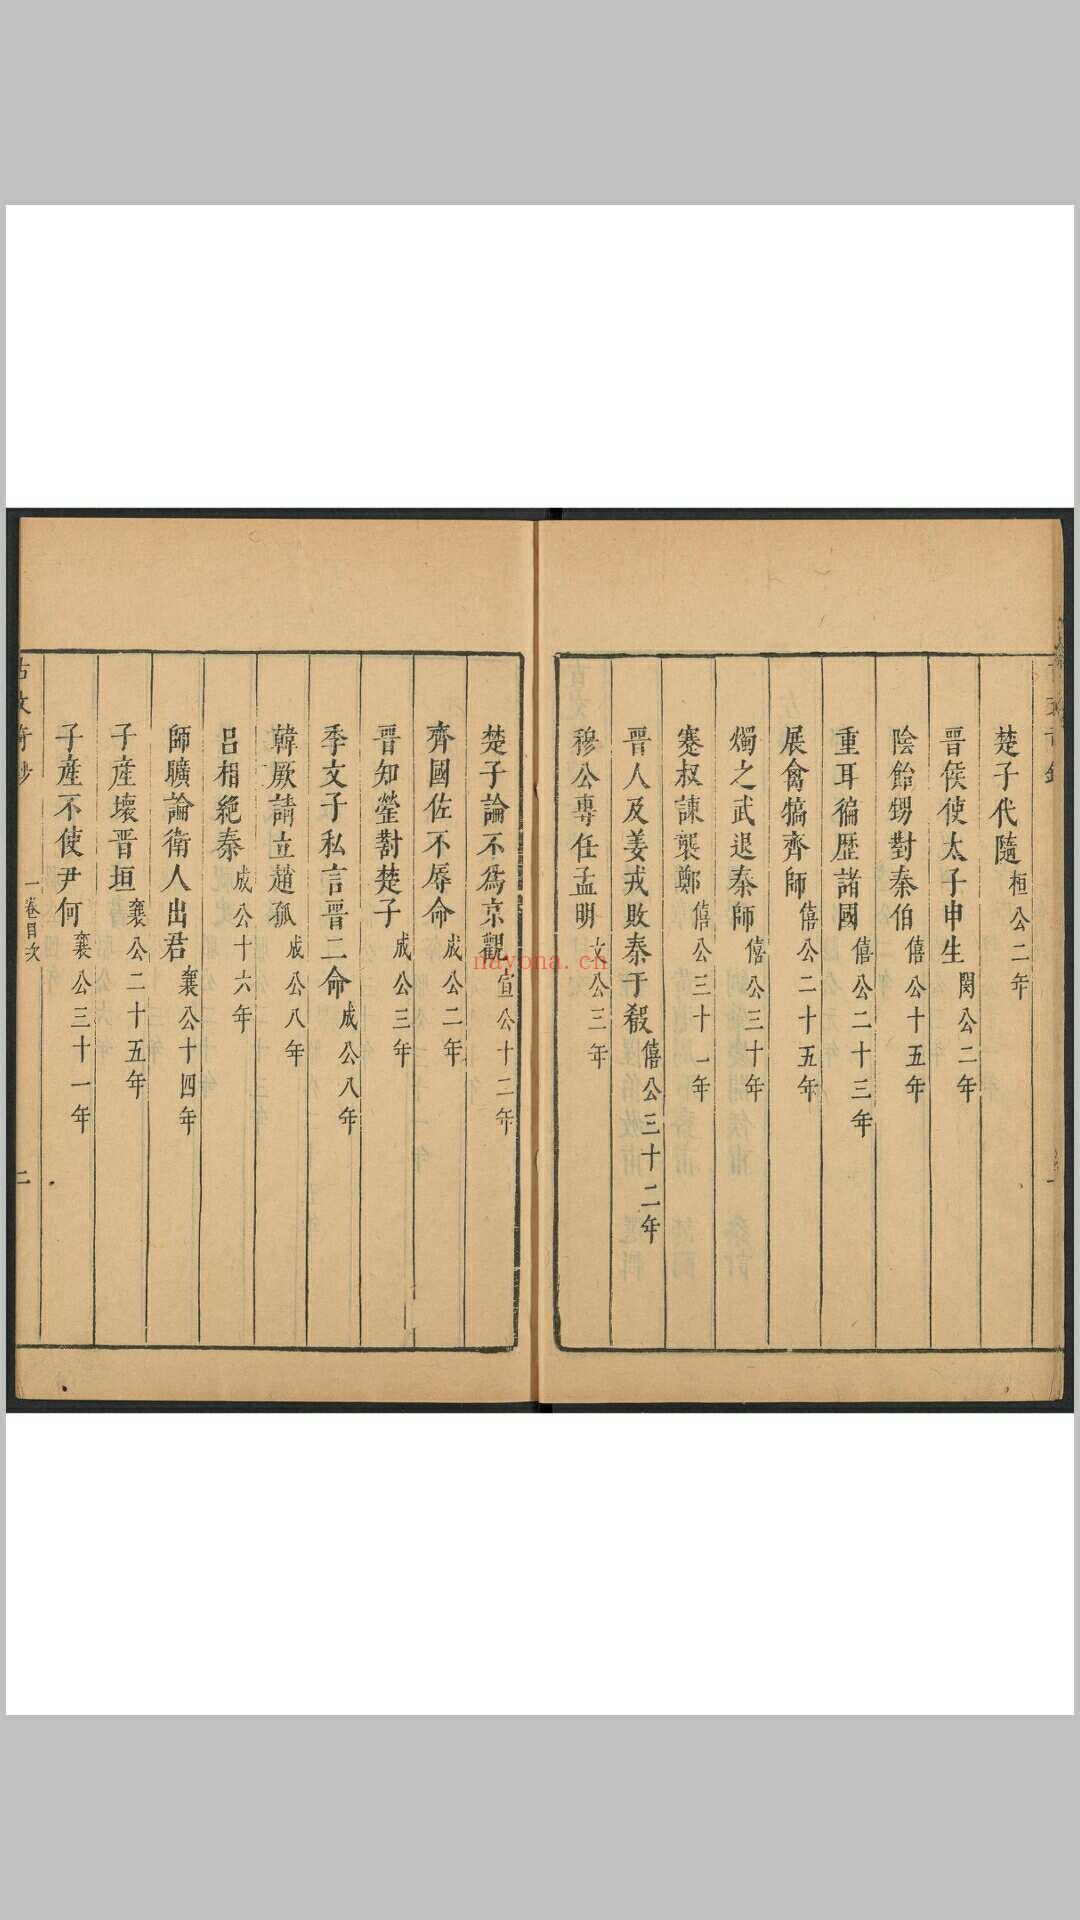 楚子代隨 桓公二年
晉侯使太子申生 閔公二年
陰飴甥對秦伯 僖公十五年
重耳徧歷諸國 僖公二十三年
展禽犒齊師 僖公二十五年
燭之武退秦師 僖公三十年
蹇叔諫襲鄭 僖公三十一年
晉人及姜戎敗秦于殽 僖公三十二年
穆公專任孟明 文公三年
楚子論不爲京觀 宣公十二年
齊國佐不辱命 成公二年
晉知罃對楚子 成公三年
季文子私言晉二命 成公八年
韓厥請立趙孤 成公八年
呂相絕秦 成公十六年
師曠論衛人出君 襄公十四年
子產壞晉垣 襄公二十五年
子產不使尹何 襄公三十一年
一卷目次
二
nayona.cn